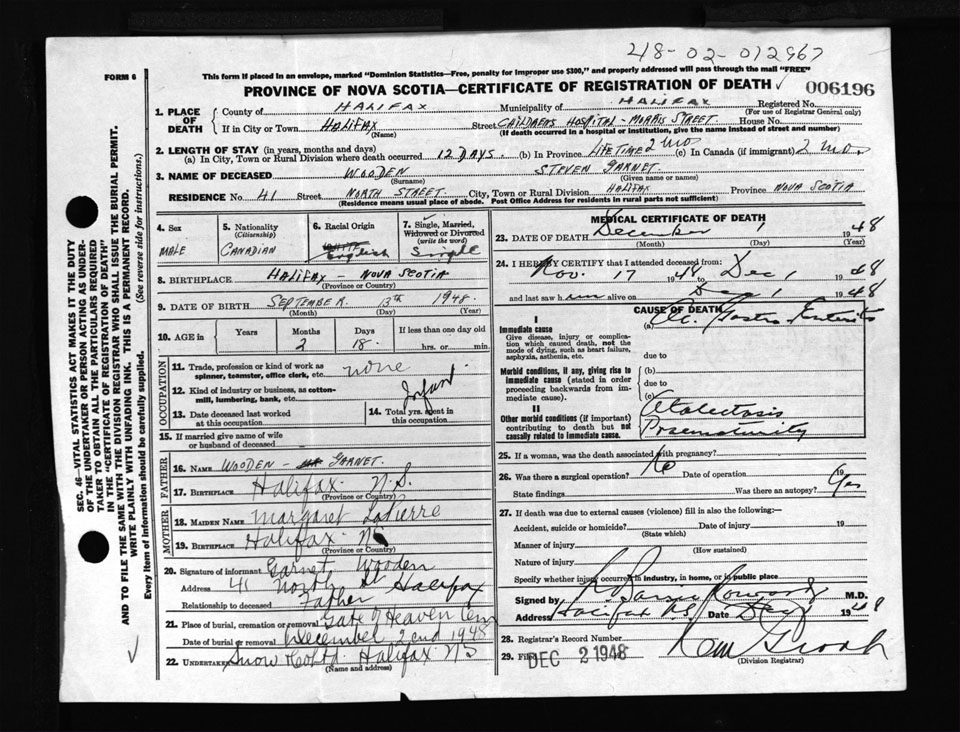 48-02-012967
FORM 6
This form if placed in an envelope, marked "Dominion Statistics—Free, penalty for improper use $300," and properly addressed will pass through the mail "FREE"
PROVINCE OF NOVA SCOTIA—CERTIFICATE OF REGISTRATION OF DEATH ✓ 006196
1. PLACE OF DEATH
County of HALIFAX Municipality of HALIFAX Registered No.
(For use of Registrar General only)
If in City or Town HALIFAX Street CHILDRENS HOSPITAL - MORRIS STREET. House No.
(Name) (If death occurred in a hospital or institution, give the name instead of street and number)
2. LENGTH OF STAY (in years, months and days)
(a) In City, Town or Rural Division where death occurred 12 DAYS. (b) In Province LIFE TIME 2 mo (c) In Canada (if immigrant) 2 mo.
3. NAME OF DECEASED WOODEN STEVEN GARNET
(Surname) (Given name or names)
RESIDENCE No 41 Street NORTH STREET. City, Town or Rural Division HALIFAX Province NOVA SCOTIA
(Residence means usual place of abode. Post Office Address for residents in rural parts not sufficient)
4. Sex
MALE
5. Nationality
(Citizenship)
CANADIAN
6. Racial Origin
English
7. Single, Married, Widowed or Divorced
(write the word)
Single
8. BIRTHPLACE HALIFAX - NOVA SCOTIA
(Province or Country)
9. DATE OF BIRTH SEPTEMBER. 13th 1948.
(Month) (Day) (Year)
10. AGE
Years Months Days If less than one day old
2 18. hrs. or min.
OCCUPATION
11. Trade, profession or kind of work as spinner, teamster, office clerk, etc. none
12. Kind of industry or business, as cotton-mill, lumbering, bank, etc. Infant
13. Date deceased last worked at this occupation
14. Total yrs. spent in this occupation
15. If married give name of wife or husband of deceased
FATHER
16. NAME WOODEN - GARNET.
17. BIRTHPLACE Halifax N.S.
(Province or Country)
MOTHER
18. MAIDEN NAME Margaret LaPierre
19. BIRTHPLACE Halifax NS
(Province or Country)
20. Signature of informant Garnet Wooden
Address 41 North St Halifax
Relationship to deceased Father
21. Place of burial, cremation or removal Gate of Heaven Cem
Date of burial or removal December 2nd 1948
22. Undertaker Snow Co Ltd. Halifax NS
(Name and address)
MEDICAL CERTIFICATE OF DEATH
23. DATE OF DEATH December 1 1948
(Month) (Day) (Year)
24. I HEREBY CERTIFY that I attended deceased from:
Nov. 17 1948 to Dec 1 1948
and last saw him alive on Dec 1 1948
CAUSE OF DEATH
I
Immediate cause
Give disease, injury or complication which caused death, not the mode of dying, such as heart failure, asphyxia, asthenia, etc.
(a) Ac. Gastro Enteritis
due to
Morbid conditions, if any, giving rise to immediate cause (stated in order proceeding backwards from immediate cause).
(b)
due to
(c)
II
Other morbid conditions (if important) contributing to death but not causally related to immediate cause.
Atalectasis
Prematurity
25. If a woman, was the death associated with pregnancy?
26. Was there a surgical operation? No Date of operation 19
State findings Was there an autopsy? Yes
27. If death was due to external causes (violence) fill in also the following:—
Accident, suicide or homicide? Date of injury 19
(State which)
Manner of injury
(How sustained)
Nature of injury
Specify whether injury occurred in industry, in home, or in public place
Signed by M.D.
Address Halifax N.S. Date Dec 1 1948
28. Registrar's Record Number
29. Filed DEC 2 1948
(Division Registrar)
SEC. 46—VITAL STATISTICS ACT MAKES IT THE DUTY
OF THE UNDERTAKER OR PERSON ACTING AS UNDERTAKER TO OBTAIN ALL THE PARTICULARS REQUIRED
IN THE "CERTIFICATE OF REGISTRATION OF DEATH"
AND TO FILE THE SAME WITH THE DIVISION REGISTRAR WHO SHALL ISSUE THE BURIAL PERMIT.
WRITE PLAINLY WITH UNFADING INK. THIS IS A PERMANENT RECORD.
Every item of information should be carefully supplied. (See reverse side for instructions.)